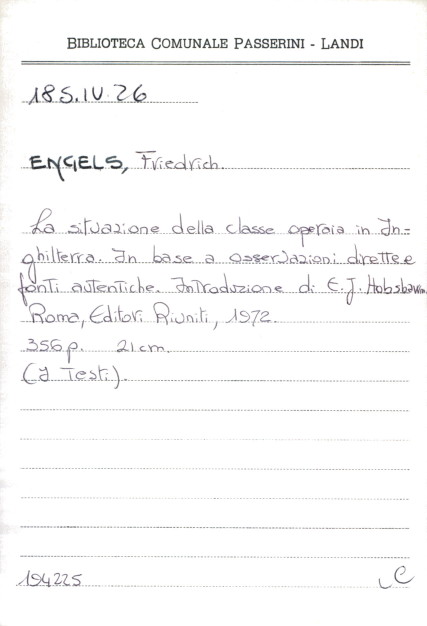 BIBLIOTECA COMUNALE PASSERINI - LANDI
18S.IV.26
ENGELS, Friedrich.
La situazione della classe operaia in In=
ghilterra. In base a osservazioni dirette e
fonti autentiche. Introduzione di E.J. Hobsbawm.
Roma, Editori Riuniti, 1972.
356 p. 21 cm.
(I Testi).
194225
C